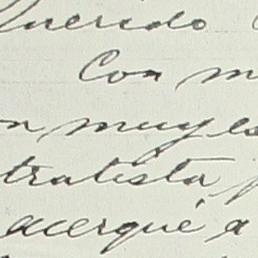 Querido
Con m
n muy es
tratista
acerqué a